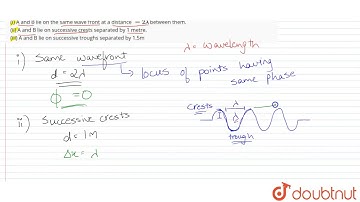 (i) A and B lie on the same wave front at a distance = 2λ between them.
(ii) A and B lie on successive crests separated by 1 metre.
(iii) A and B lie on successive troughs separated by 1.5m
λ = wavelength
i) Same wavefront
d = 2λ
↳ locus of points having
same phase
ϕ = 0
ii) Successive crests
d = 1M
Δx = λ
Crests
λ
λ
trough
doubtnut